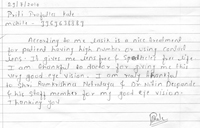 Priti Praful Kale
mobile - 9969638887
According to me lasik is a nice treatment
for patient having high number or using contact
lens. It gives me lens free & spects free life.
I am thankful to doctor for giving me this
very good eye vision. I am very thankful
to Shri Ramkrishna Netralaya & Dr. Nitin Deshpande
& his staff member for my good eye vision.
Thanking you